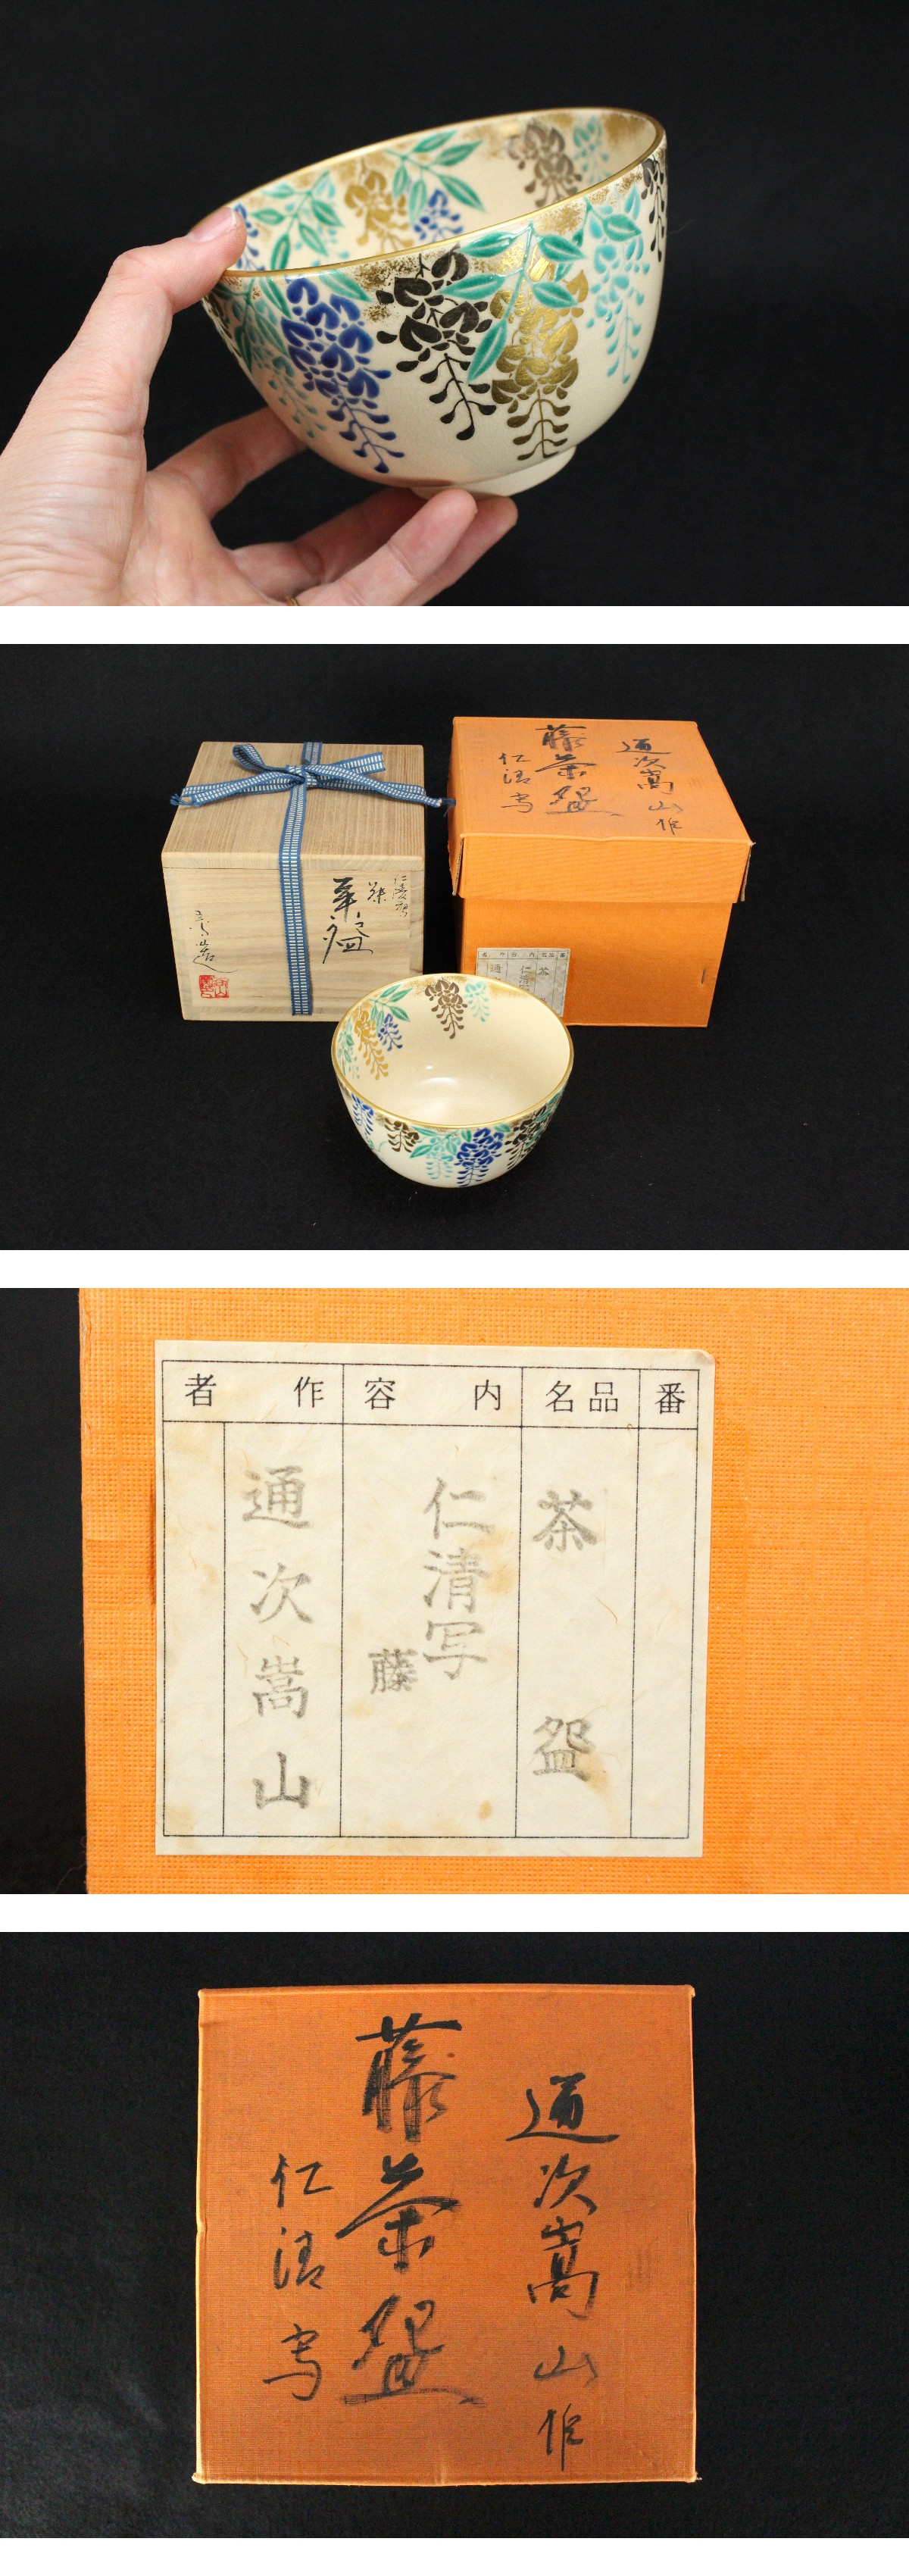 通次嵩山作
藤茶盌
仁清写
藤
茶盌
番
品名
内容
作者
茶盌
仁清写
藤
通次嵩山
通次嵩山作
藤茶盌
仁清写